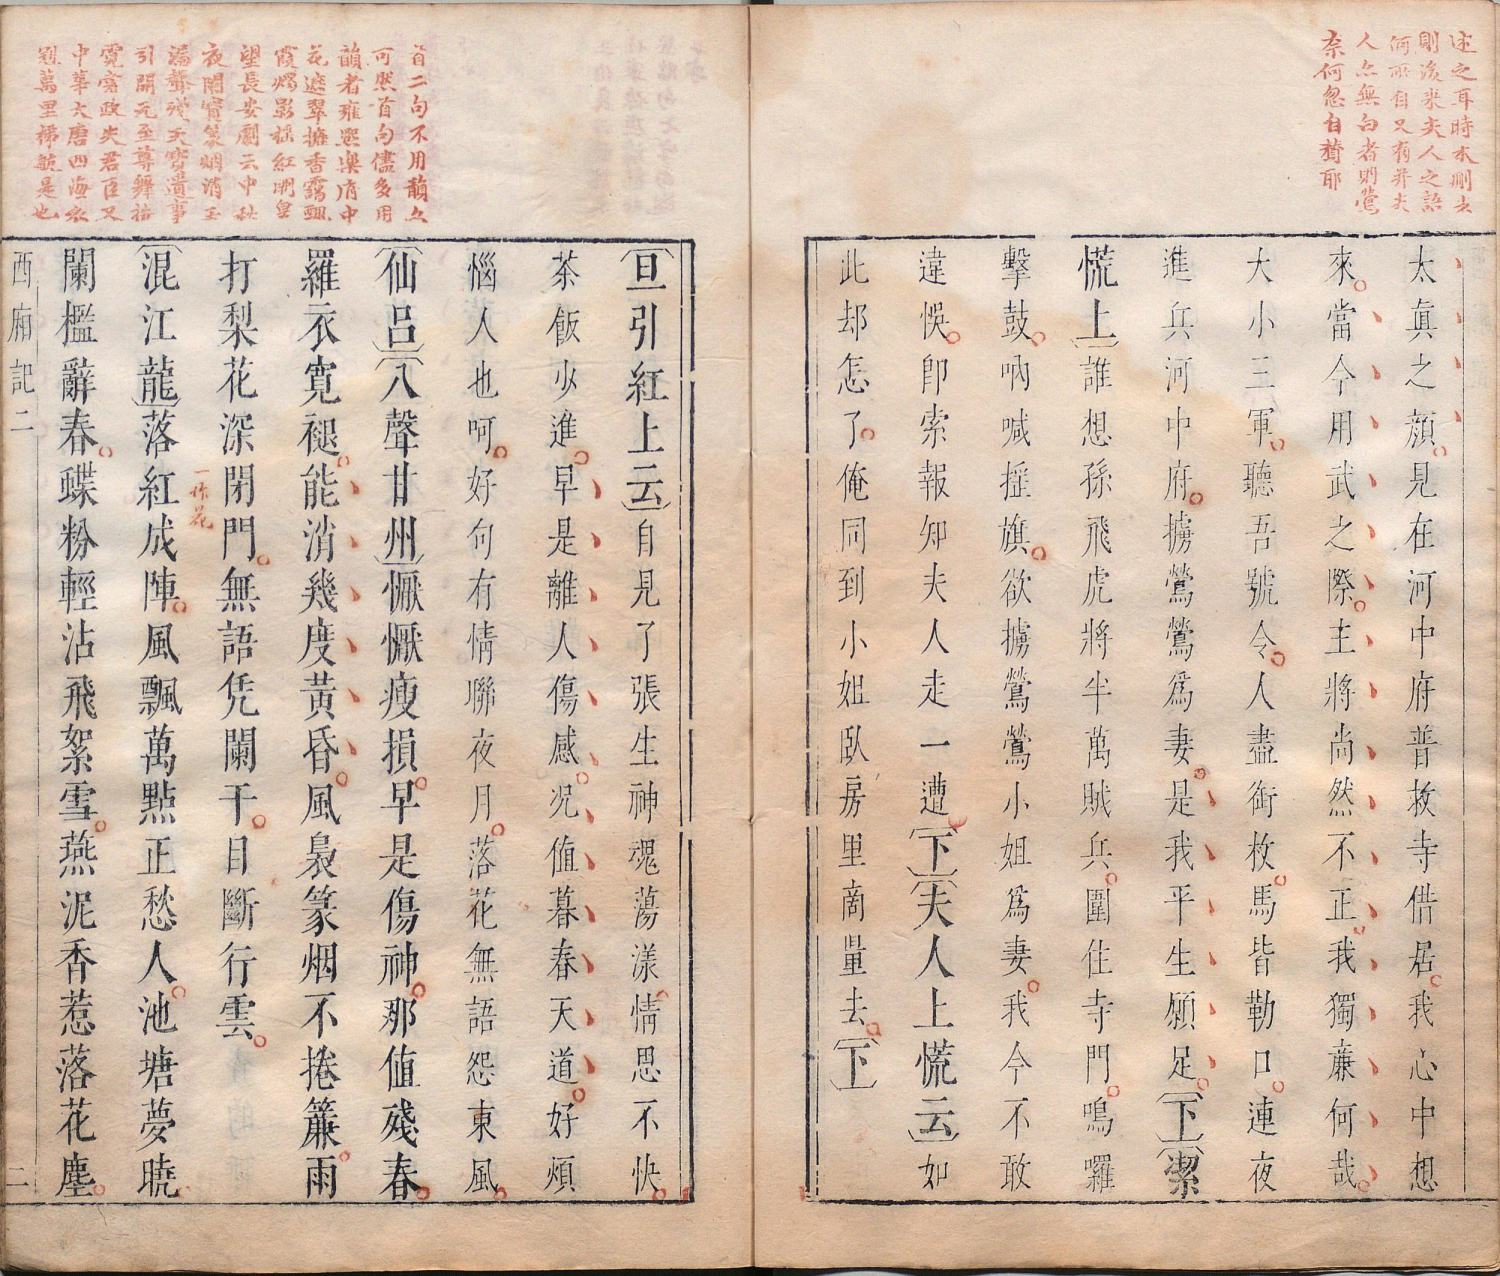 述之耳時本刪去
則後来夫人之語
何所自又有并夫
人亦無白者則鶯
奈何忽自贊耶
太真之顔。見在河中府普救寺借居。我心中想
來。當今用武之際。主將尚然不正。我獨廉何哉。
大小三軍。聽吾號令。人盡銜枚。馬皆勒口。連夜
進兵河中府。擄鶯鶯爲妻。是我平生願足。〔下〕〔潔
慌上〕誰想孫飛虎將半萬賊兵。圍住寺門。鳴囉
擊鼓。吶喊揺旗。欲擄鶯鶯小姐爲妻。我今不敢
違悞。卽索報知夫人走一遭。〔下〕〔夫人上慌云〕如
此却怎了。俺同到小姐臥房里商量去。〔下〕
首二句不用韻亦
可然首句儘多用
韻者雍熙樂府中
花遮翠擁香靄飄
霞燭影揺紅明皇
望長安劇云中秋
夜闌寶篆烟消玉
漏聲殘天寶遺事
引開元至尊舞按
霓裳政失君臣又
中華大唐四海衣
冠萬里梯航是也
〔旦引紅上云〕自見了張生神魂蕩漾。情思不快。
茶飯少進。早是離人傷感。况值暮春天道。好煩
惱人也呵。好句有情聯夜月。落花無語怨東風。
〔仙呂〕〔八聲甘州〕懨懨瘦損。早是傷神。那值殘春。
羅衣寬褪。能消幾度黃昏。風裊篆烟不捲簾。雨
打梨花深閉門。無語凭闌干。目斷行雲。
一作花
〔混江龍〕落紅成陣。風飄萬點正愁人。池塘夢曉。
闌檻辭春。蝶粉輕沾飛絮雪。燕泥香惹落花塵。
西廂記二
二